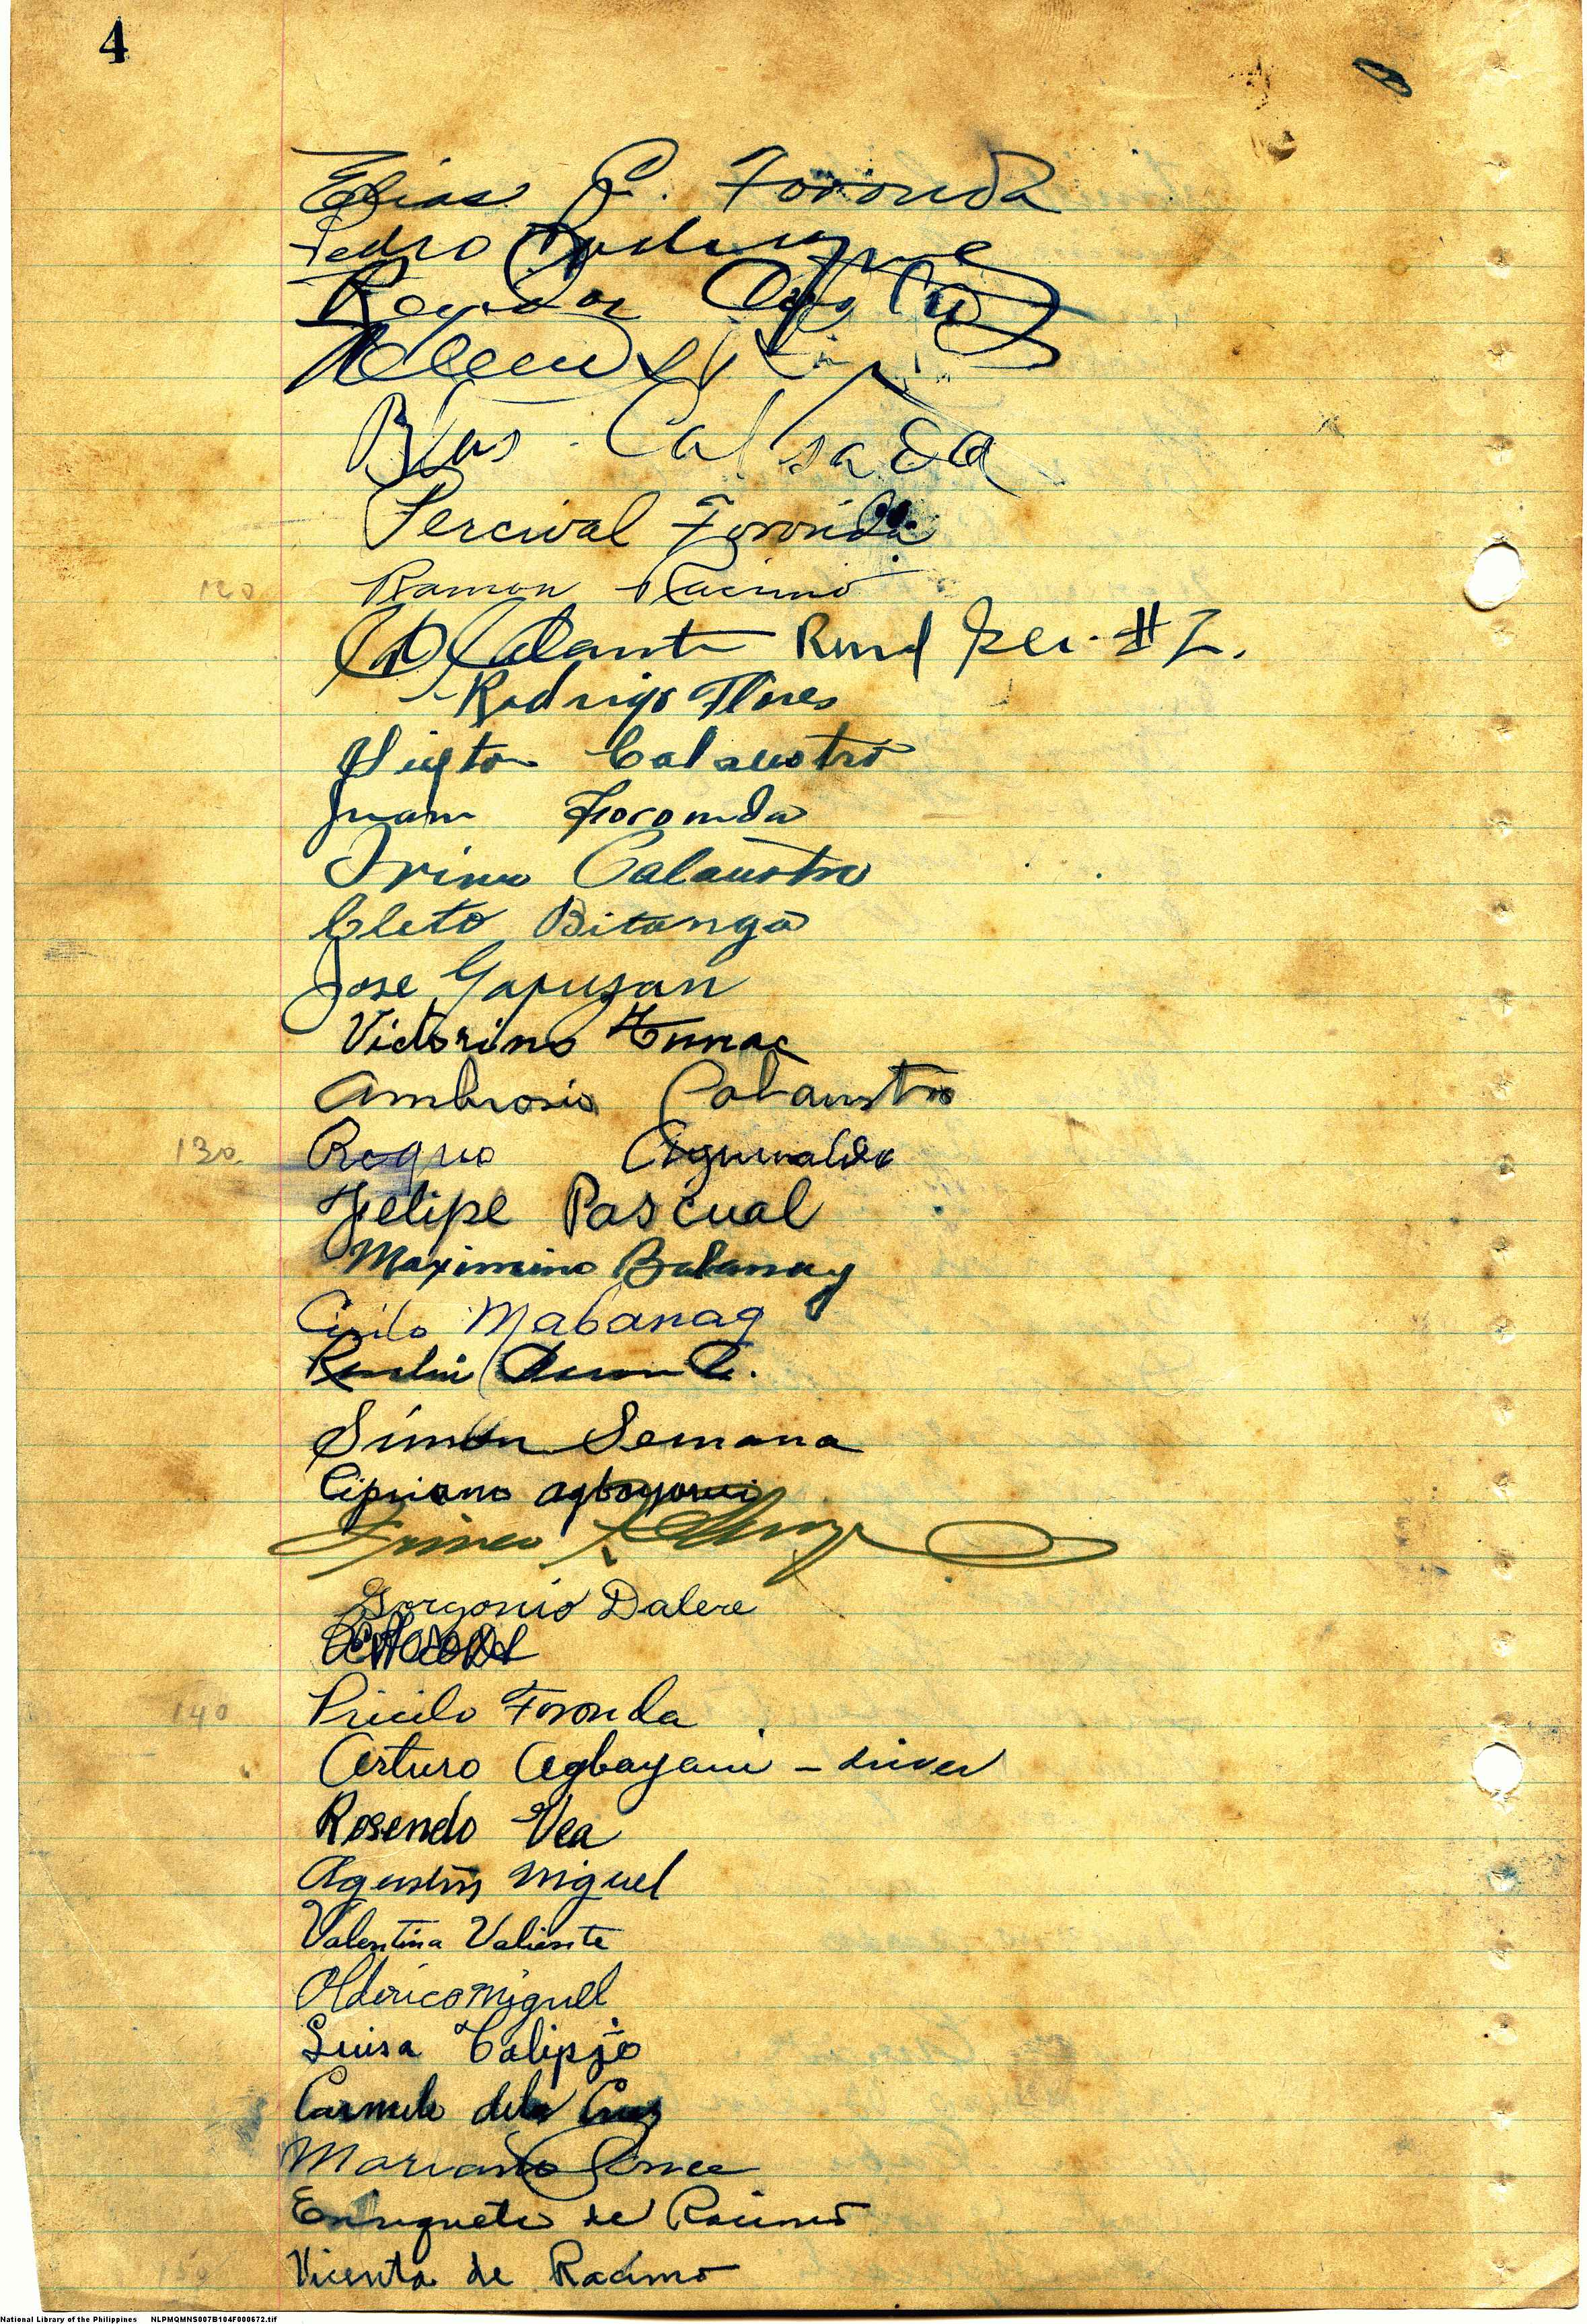 4
Elias C. Foronda
Pedro
Blas Calsada
Percival Foronda
120 Ramon Racimo
#2.
Rodrigo Flores
Calaustro
Juan Foronda
Irineo Calaustro
Cleto Bitanga
Jose Gapusan
Victorino
Ambrosio Calaustro
130 Roque Aguinaldo
Felipe Pascual
Maximino Balanay
Cirilo Mabanag
Simon Semana
Cipriano Agbayani
Gorgonio Dalere
140 Foronda
Arturo Agbayani - driver
Rosendo Vea
Agustin Miguel
Valentina Valiente
Alderico Miguel
Luisa Calipjo
Carmelo dela Cruz
Mariano Ponce
Enriqueta de Racimo
150 Vicenta de Racimo
National Library of the Philippines NLPMQMNS007B104F000672.tif